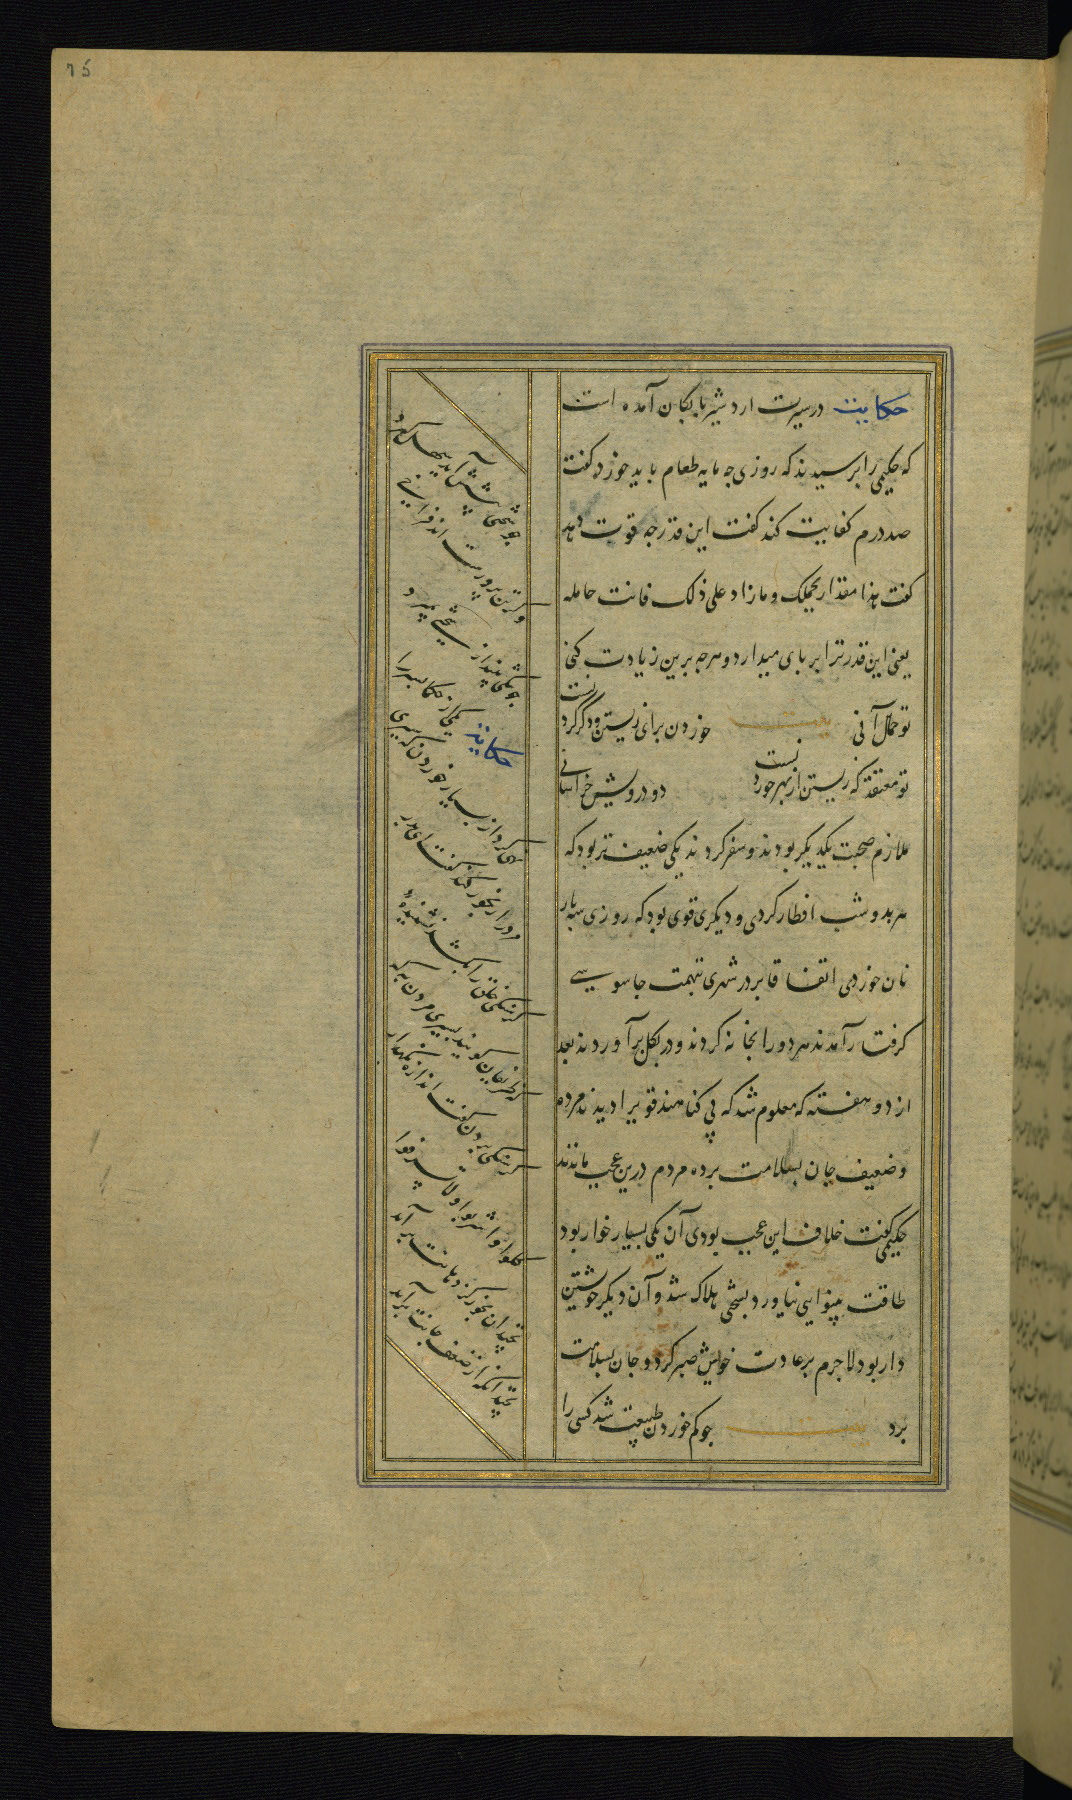 75
حکایت درسیرت اردشیر بابکان آمده است
که حکیمی را پرسیدند که روزی چه مایه طعام باید خورد گفت
صد درم کفایت کند گفت این قدر چه قوت دهد
گفت هذا مقدار یحملک و مازاد علی ذلک فانت حامله
یعنی این قدر ترا بر پای میدارد و هرچه برین زیادت کنی
تو حمال آنی بیت خوردن برای زیستن و ذکر کردنست
تو معتقد که زیستن از بهر خوردنست دو درویش خراسانی
ملازم صحبت یکدیگر بودند و سفر کردند یکی ضعیف تر بود که
هر بدو شب افطار کردی و دیگری قوی بود که روزی سه بار
نان خوردی اتفاقا بر در شهری بتهمت جاسوسی
گرفتار آمدند هر دو را بخانه کردند و در بگل برآوردند بعد
از دو هفته که معلوم شد که بی گناهند قوی را دیدند مرده
و ضعیف جان بسلامت برده مردم درین عجب ماندند
حکیمی گفت خلاف این عجب بودی آن یکی بسیار خوار بود
طاقت بینوایی نیاورد بسختی هلاک شد و آن دیگر خویشتن
دار بود لاجرم بر عادت خویش صبر کرد و جان بسلامت
برد چو کم خوردن طبیعت شد کسی را
چو سختی پیشش آید سهل گیرد
وگر تن پرورست اندر فراخی
چو تنگی بیند از سختی بمیرد
حکایت یکی از حکما پسر را
نهی کردی از بسیار خوردن که سیری
مردم را رنجور کند گفت ای پدر
گرسنگی خلق را بکشد نشنیده
که ظریفان گویند بسیری مردن به که
گرسنگی بردن گفت اندازه نگهدار
کلوا واشربوا ولا تسرفوا
نچندان بخور کز دهانت برآید
نچندانکه از ضعف جانت برآید